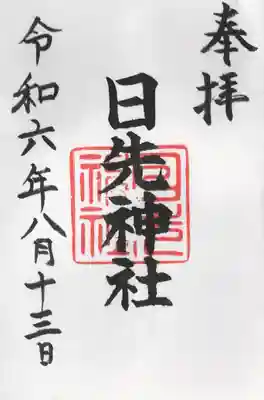 奉拝
日先神社
令和六年八月十三日